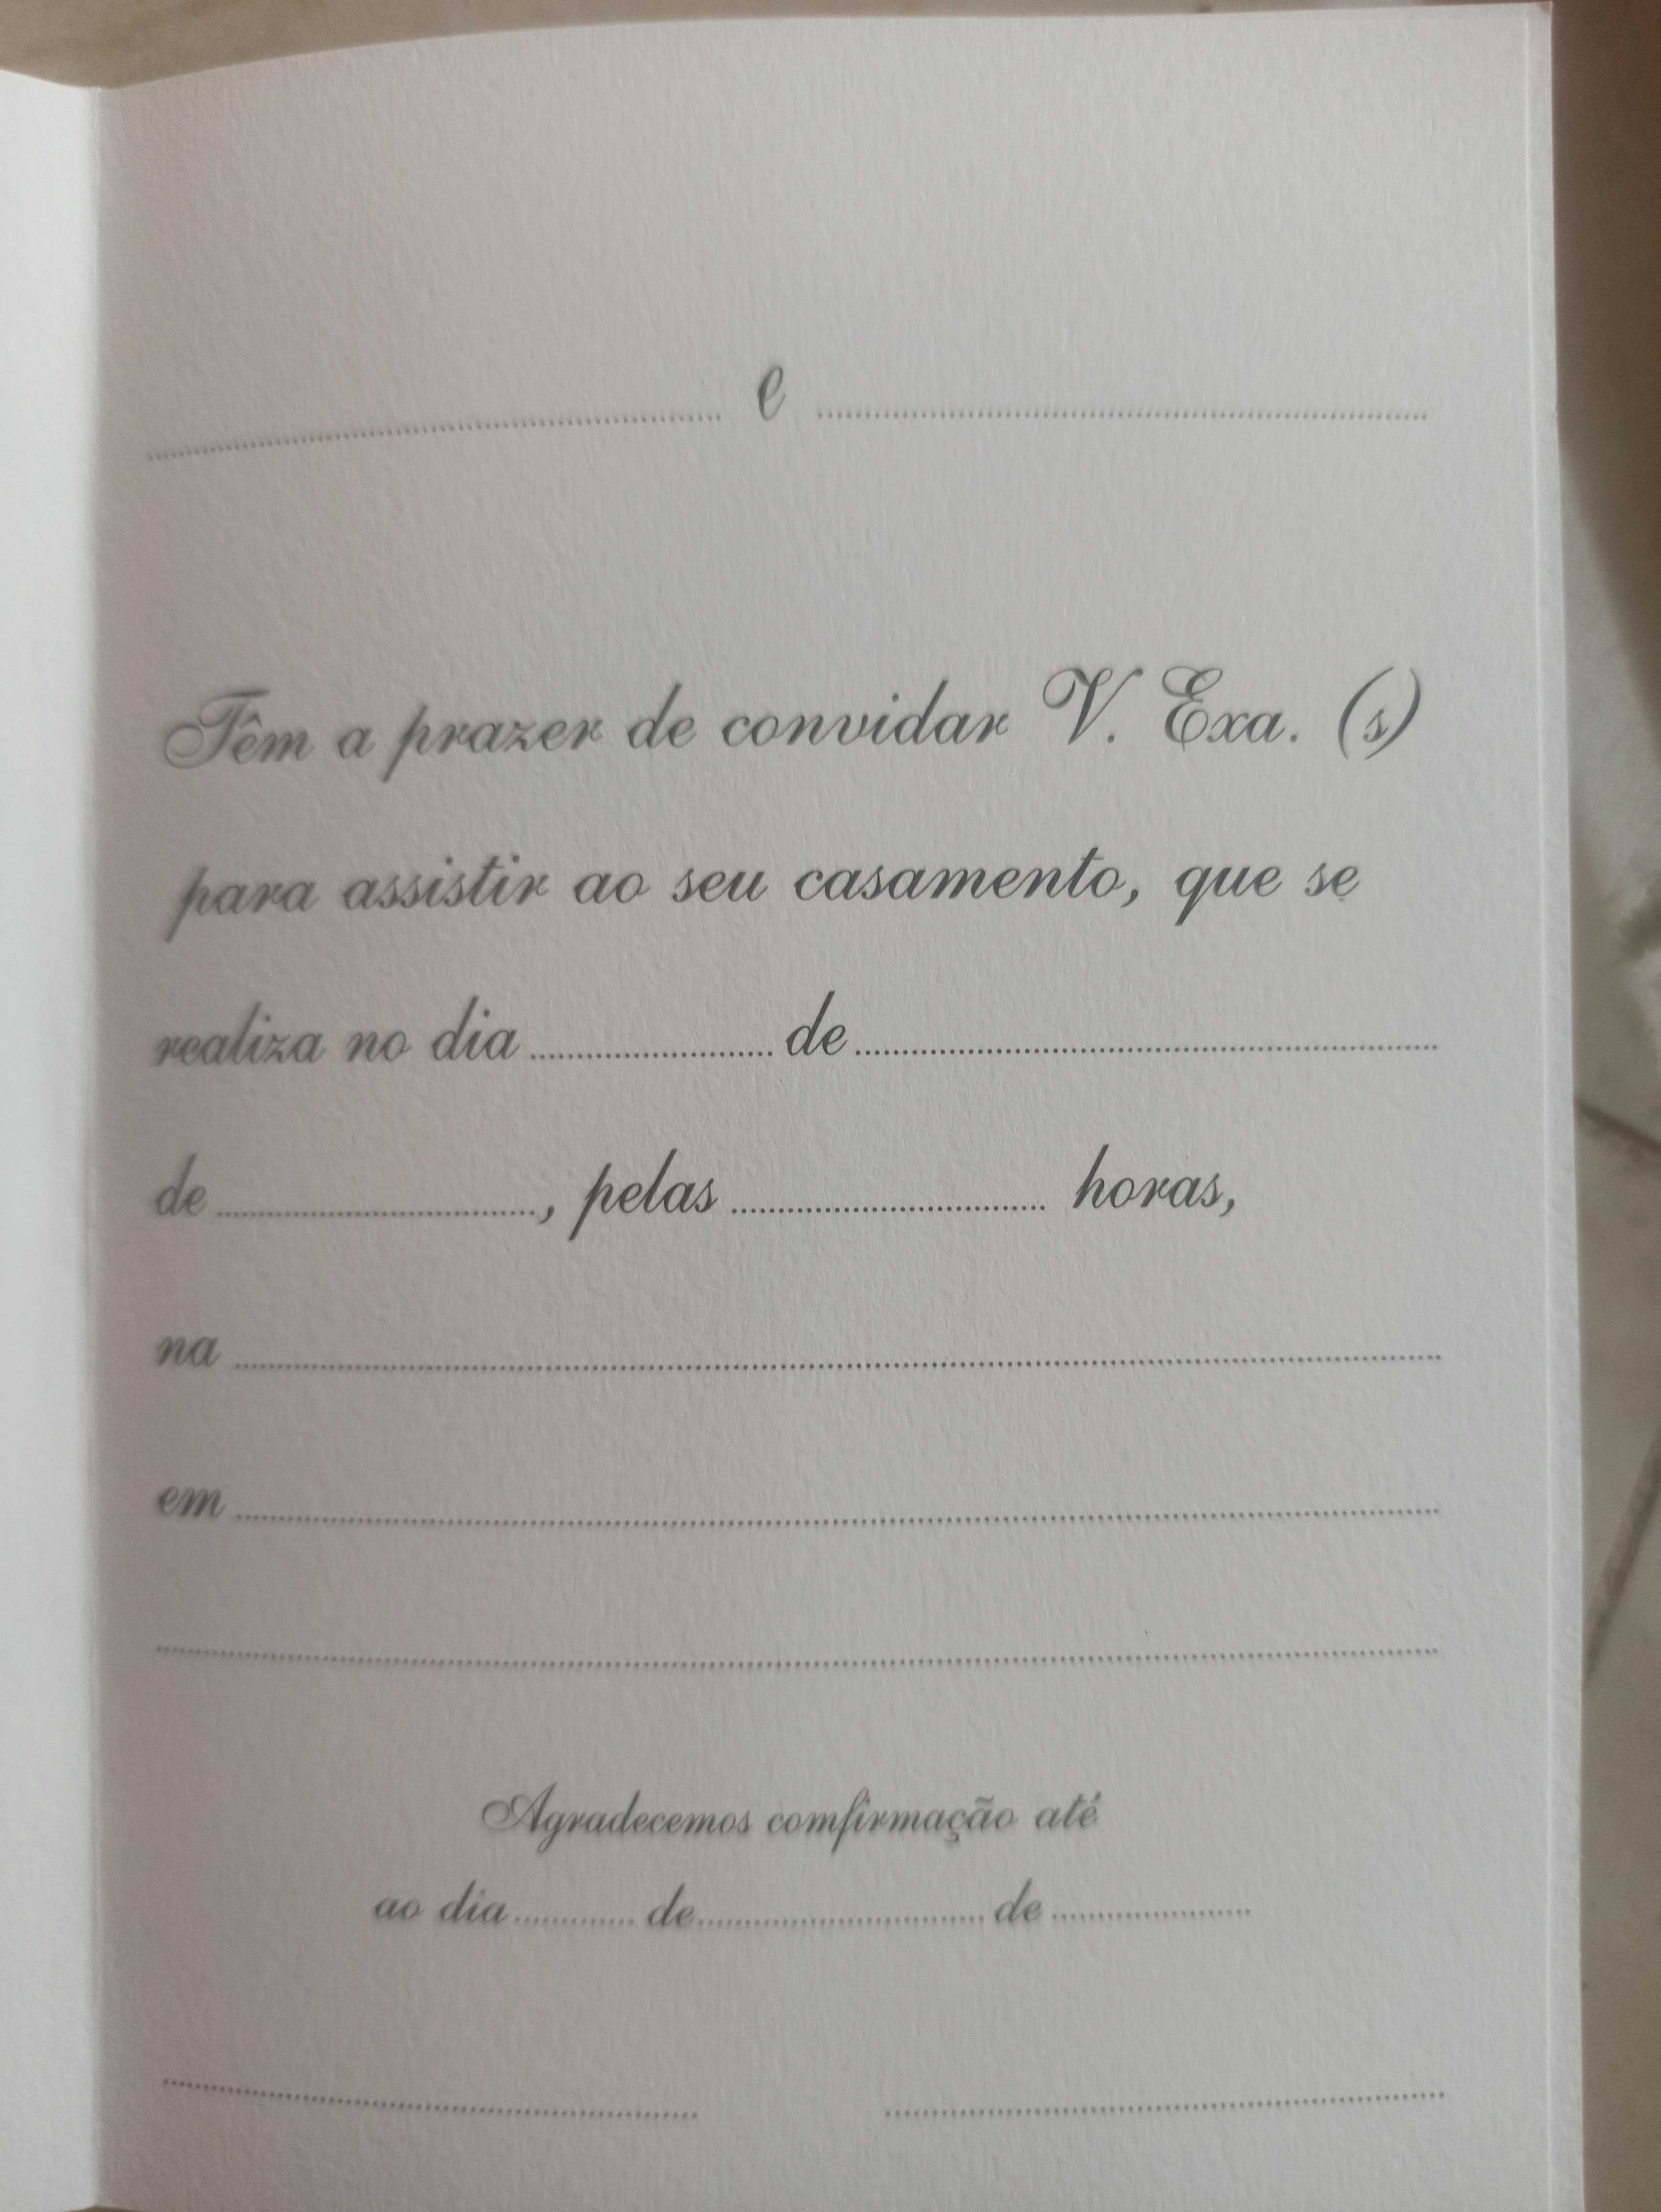 ........ e ........
Têm a prazer de convidar V. Exa. (s)
para assistir ao seu casamento, que se
realiza no dia ........ de ........
de ........, pelas ........ horas,
na ........
em ........
........
Agradecemos comfirmação até
ao dia ........ de ........ de ........
........ ........